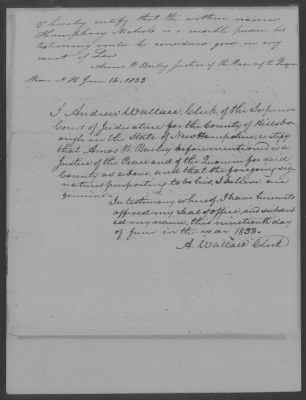 I hereby certify that the within named
Humphrey Nichols is a credible person his
testimony would be considered good in any
court of Law
Amos W. Baily Justice of the Peace & of the Quorum
N H June 16. 1833
I Andrew Wallace Clerk of the Superior
Court of Judicature for the County of Hillsbor
ough in the State of New Hampshire certify
that Amos W. Bailey before mentioned is a
Justice of the Peace and of the Quorum for said
County as above, and that the foregoing sig
natures purporting to be his, I believe are
genuine.
In testimony whereof, I have hereunto
affixed my Seal of office, and subscrib
ed my name, this nineteenth day
of June in the year 1833.
A. Wallace Clerk